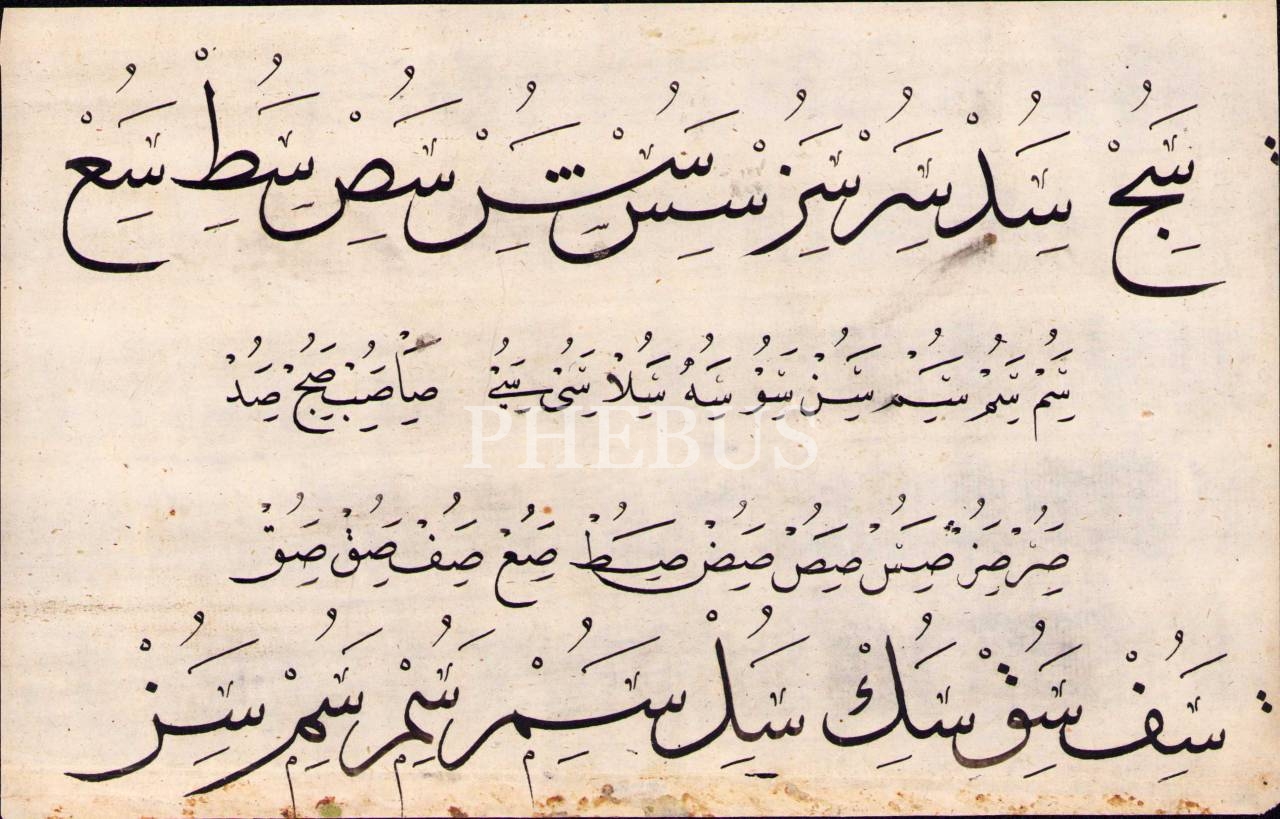 سج سد سر سز سس سش سص سط سع
سم سم سم سن سو سه سلا سى سے صا صب صج صد
PHEBUS
صر صز صس صص صض صط صع صف صق صق
سف سق سك سل سم سم سم سن